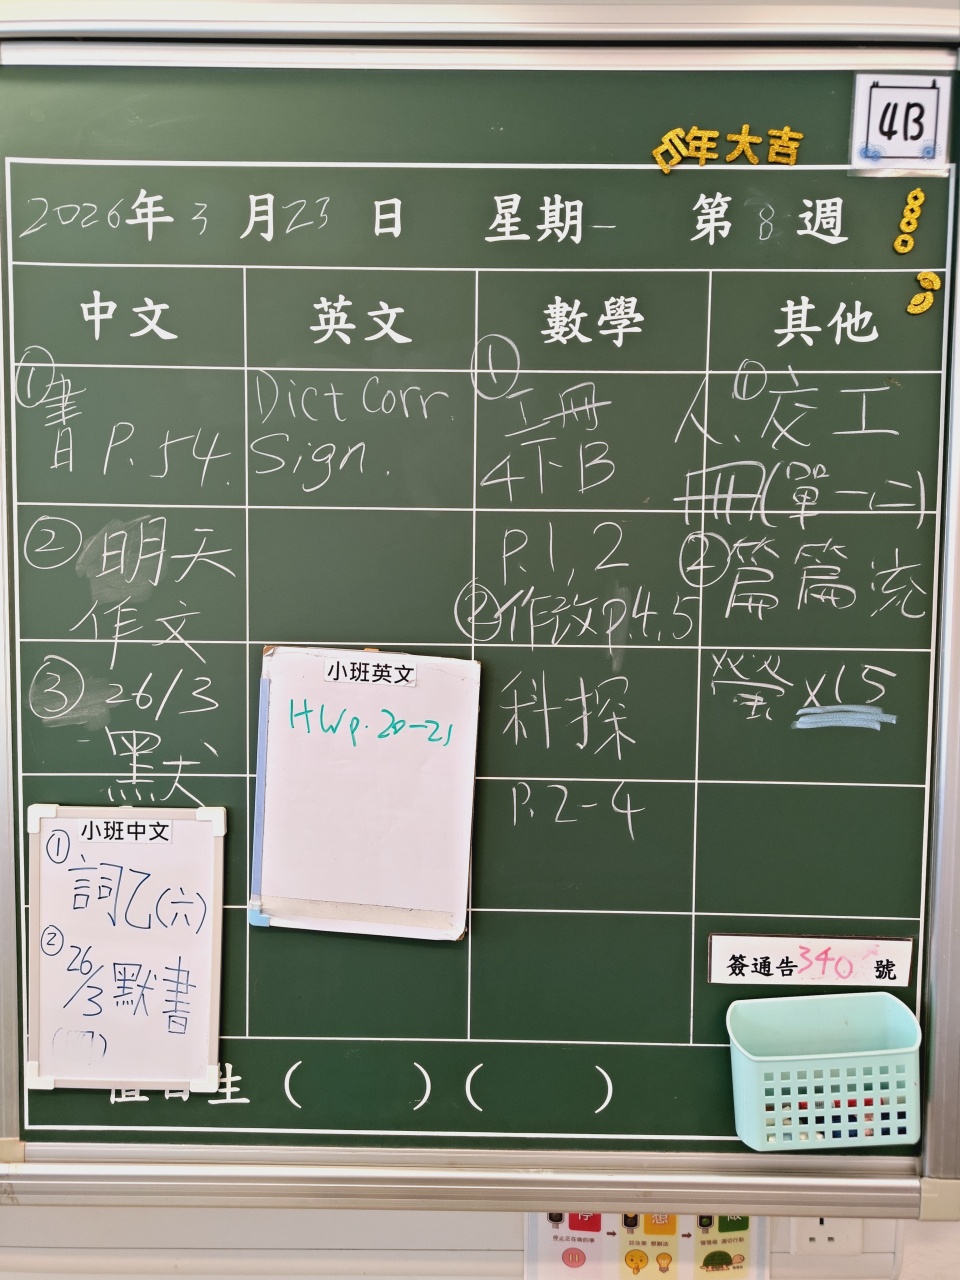 4B
年大吉
2026年3月23日 星期一 第8週
中文 英文 數學 其他
①書 P.54.
②明天作文
③26/3
默
Dict Corr.
Sign.
①
冊
4下B
P.1,2
②作改p.4,5
科探
P.2-4
①
人、交工
冊(單一、二)
②篇篇流
螢 x15
小班英文
HW p.20-21
小班中文
①
詞乙(六)
②
26/3 默書
簽通告340號
生 ( ) ( )
停
想